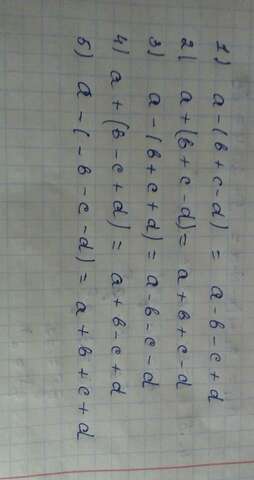 1) a-(b+c-d) = a-b-c+d
2) a+(b+c-d)= a+b+c-d
3) a-(b+c+d)= a-b-c-d
4) a+(b-c+d)= a+b-c+d
5) a-(-b-c-d)= a+b+c+d